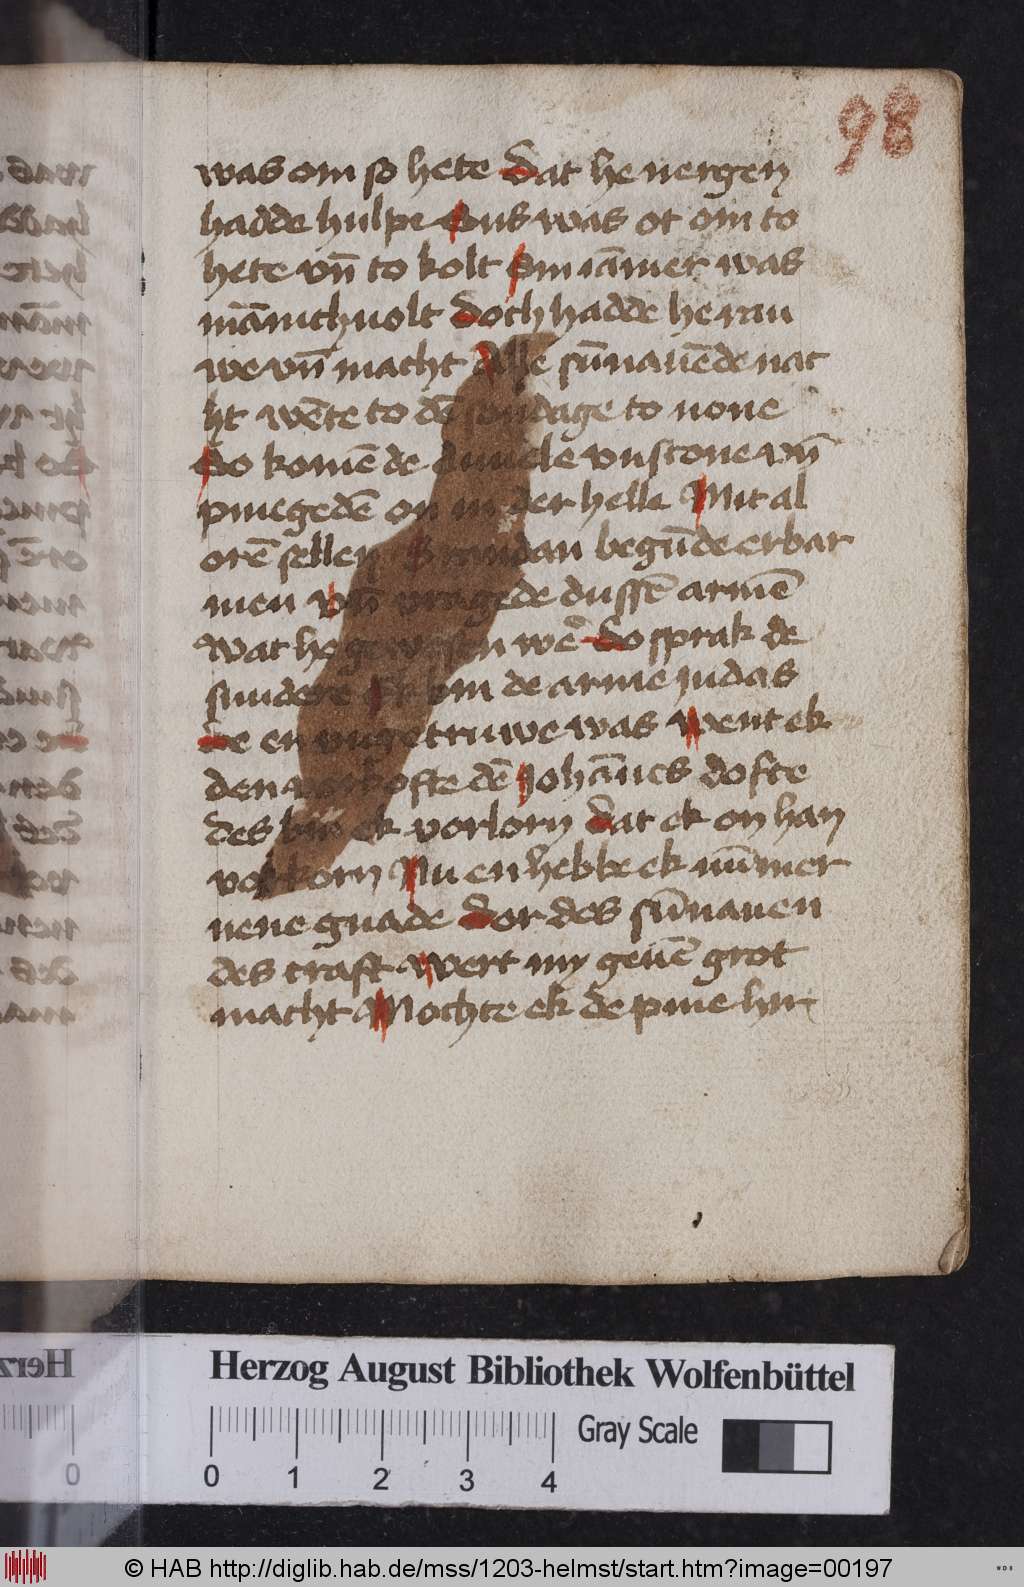 98
was om so hete dat he nergen
hadde hulpe Sus was ot om to
hete vn̄ to kolt Sin iāmer was
māinchuolt doch hadde he rau
we vn̄ macht Alle sūnauēde nac
ht wēte to dē sondage to none
So komē de duuele vnscone vn̄
pinegedē on in der helle Mit al
orē sellen Brandan begūde erbar
men vn̄ vragede dussē armē
wat he gewesen wer do sprak de
sundere Ik bin de arme judas
de en vngetruwe was went ek
den vorkofte dē Johānes dofte
des bin ek vorlorn dat ek on han
vorkorn Nu en hebbe ek nūmer
nene gnade vor des sūnauen
des craft wert my geuē grot
macht Mochte ek de pine hir
Herzog August Bibliothek Wolfenbüttel
Gray Scale
0 1 2 3 4
© HAB http://diglib.hab.de/mss/1203-helmst/start.htm?image=00197